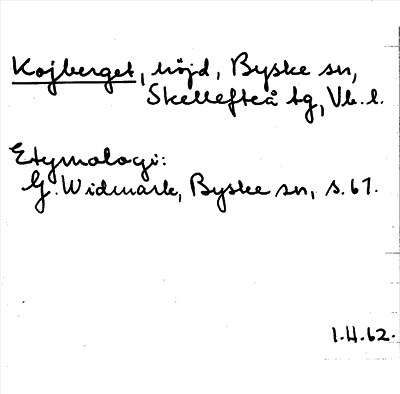 Kojberget, höjd, Byske sn,
Skellefteå tg, Vb. l.
Etymologi:
G. Widmark, Byske sn, s. 67.
I.H.62.